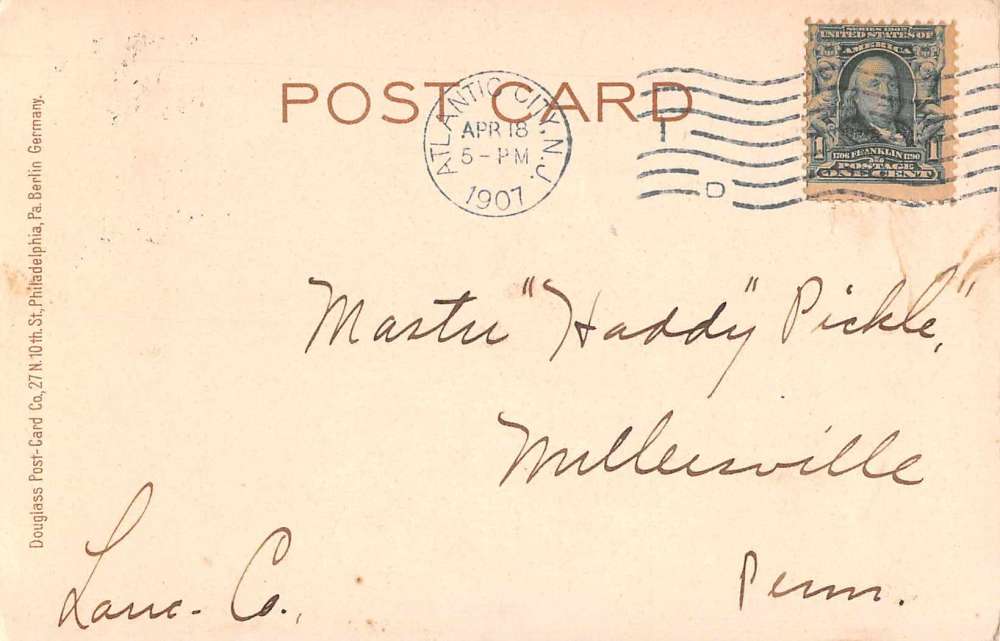 POST CARD
ATLANTIC CITY, N.J.
APR 18
5 - PM
1907
D
SERIES 1902
UNITED STATES OF
AMERICA
1706 FRANKLIN 1790
1 POSTAGE 1
ONE CENT
Douglass Post-Card Co., 27 N. 10th. St., Philadelphia, Pa. Berlin Germany.
Master "Haddy" Pickle,"
Millersville
Penn.
Lanc- Co.,